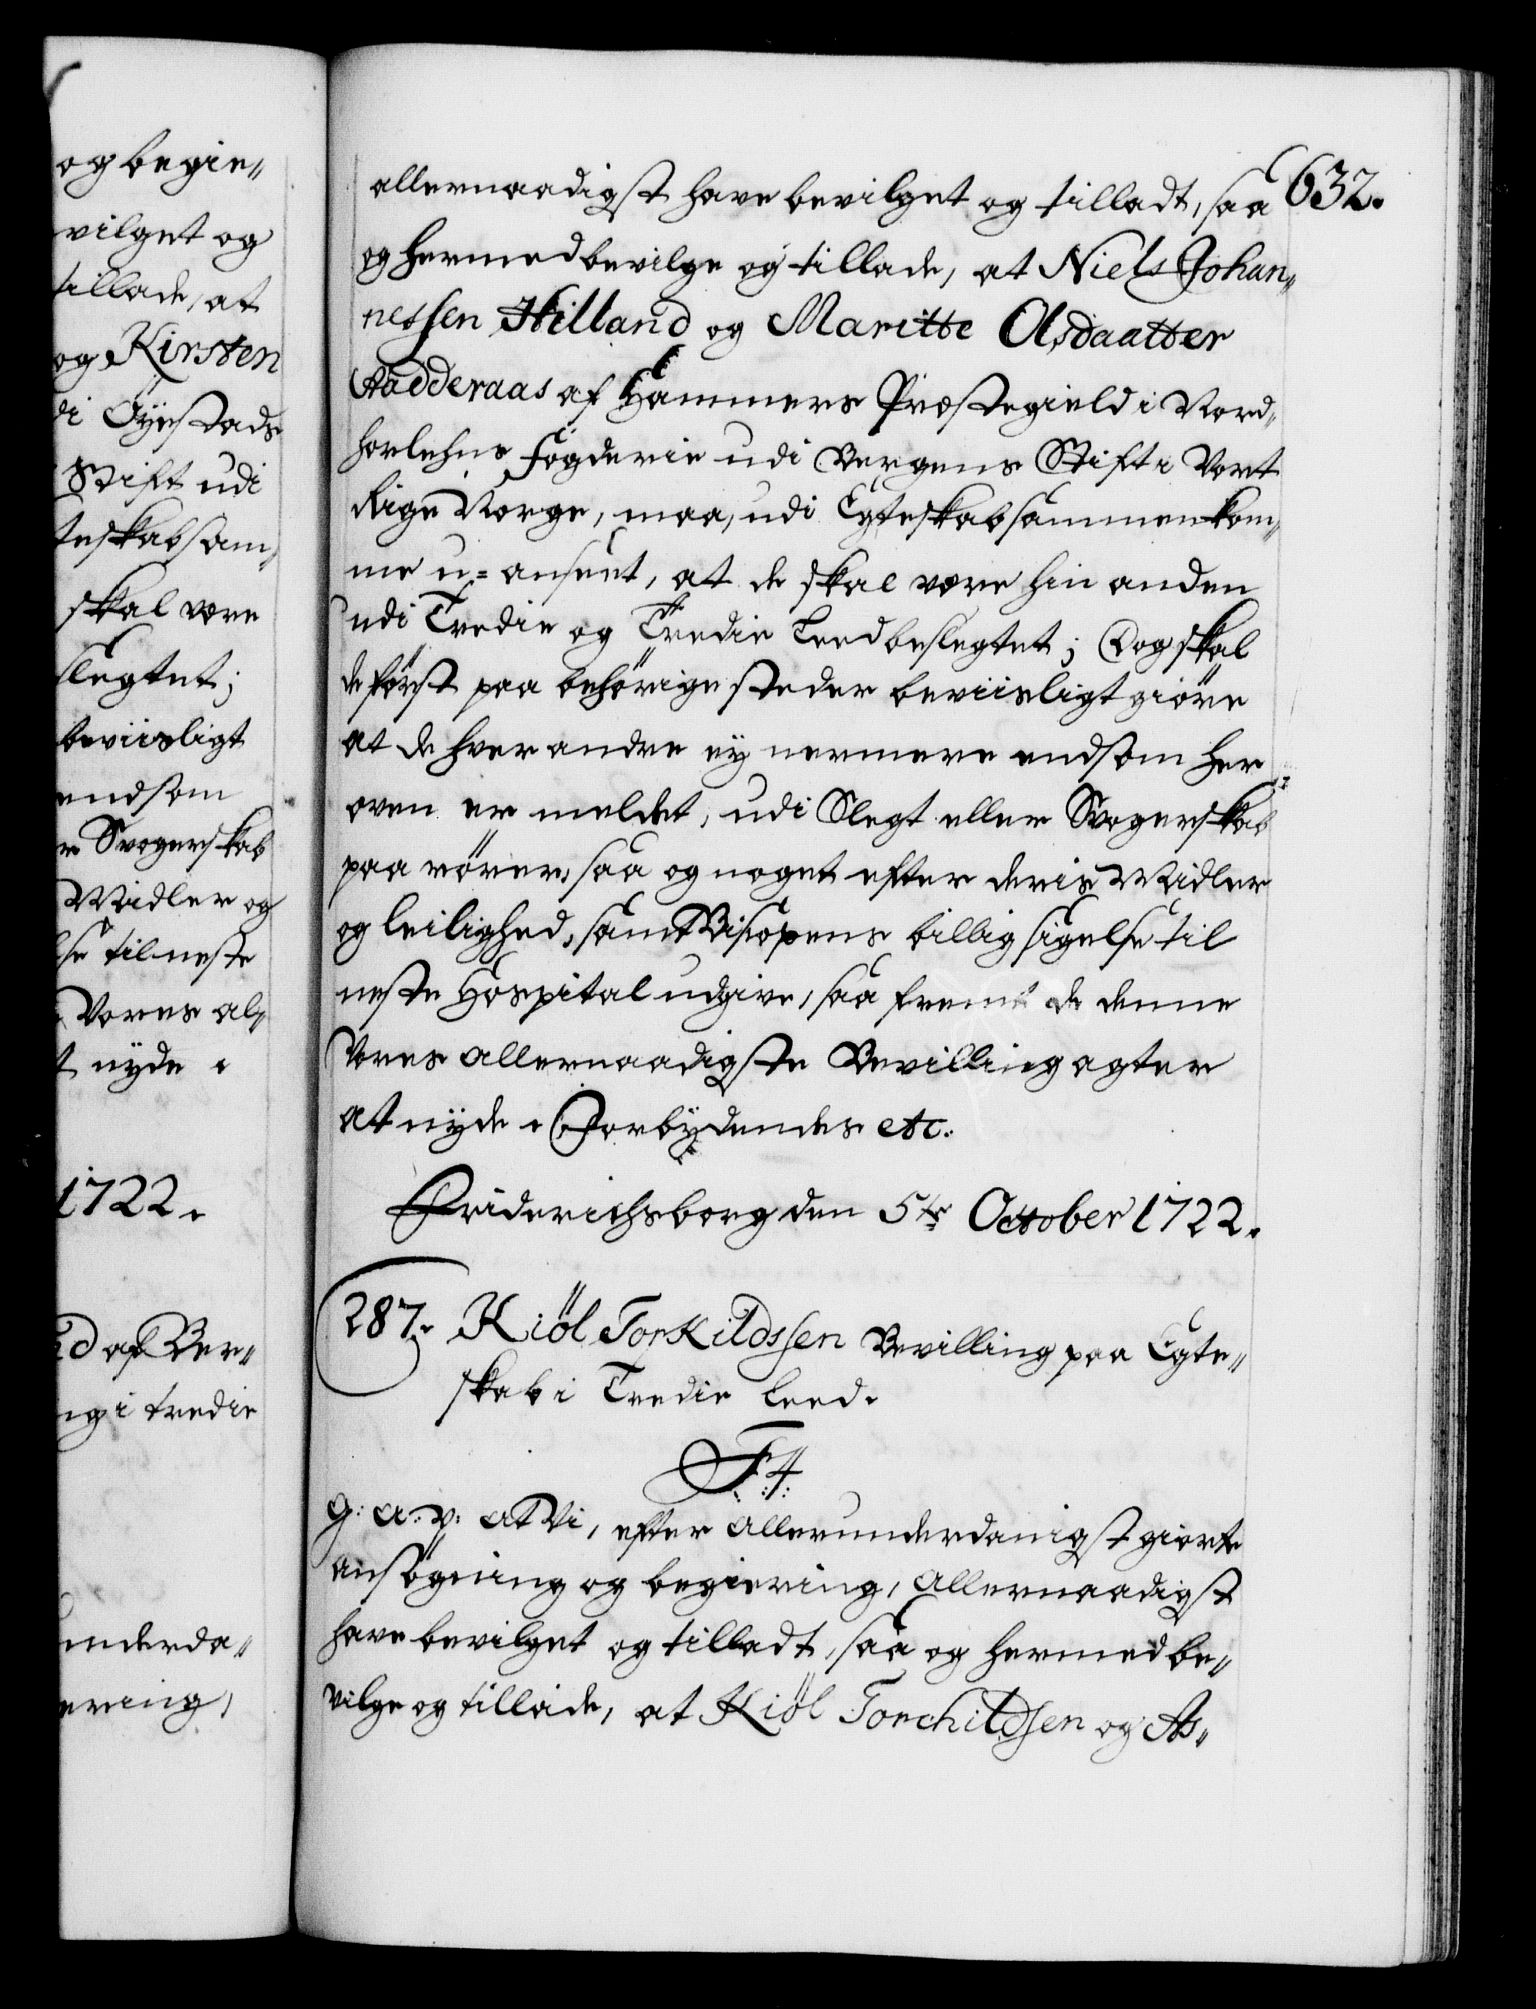 og begie„
vilget og
tillade, at
og Kirsten
di Öÿestads
Stift udi
teskab sam„
skal være
slegtet;
beviisligt
endsom
r Svogerskab
Midler og
lse til neste
Vores al„
t nyde.
1722.
d af Ber„
ng i tredie
underda„
ering,
632.
allernaadigst have bevilget og tilladt, saa
og hermed bevilge og tillade, at Niels Johan„
nessen Hilland og Maritte Olsdaatter
Aadderaas af Hammers Præstegield i Nord„
horlehns Fögderie udi Bergens Stift i Vort
Rige Norge, maa, udi Egteskab sammenkom„
me u=anseet, at de skal være hin anden
udi Tredie og Tredie Leed beslegtet; Dog skal
de först paa behörige steder beviisligt giöre
at de hver andre ey nermere endsom her
oven er meldet, udi Slegt eller Svogerskab
paa rörer, saa og noget efter deris Midler
og leilighed, samt Biscopens billig sigelse til
neste Hospital udgive, saa fremt de denne
Vores allernaadigste Bevilling agter
at nyde. Forbÿdendes etc.
Friderichsborg den 5te October 1722.
287. Kiöl Torkildssen Bevilling paa Egte„
skab i Tredie Leed.
F4
G: A: V: At Vi, efter allerunderdanigst giorte
ansögning og begiering, allernaadigst
have bevilget og tilladt, saa og hermed be„
vilge og tillade, at Kiöl Torchildsen og As„